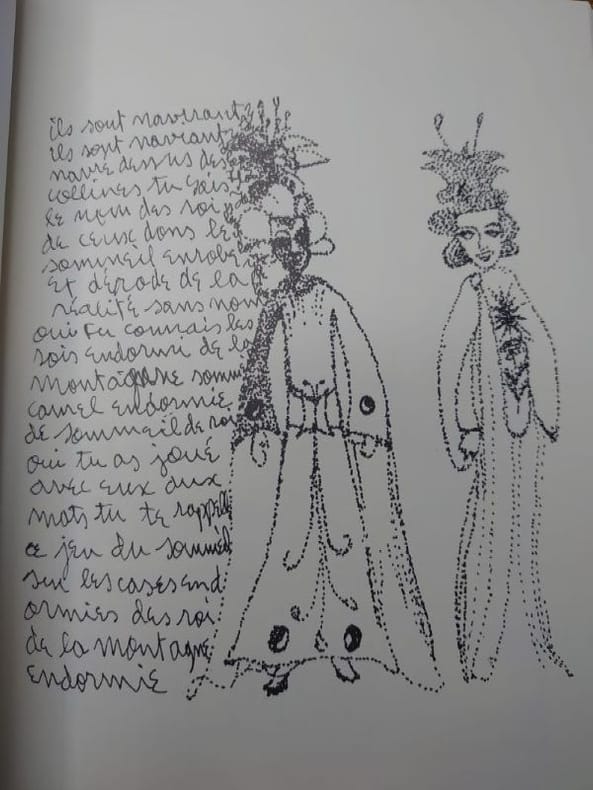 ils sont navirant
ils sont navirant
navire dessus des
collines tu sais
le nom des roi
de ceux dons le
sommeil enrobe
et dérode de la
réalité sans nom
oui tu connais les
rois endormi de la
montagne somm
camel endormie
de sommeil de roi
oui tu as joué
avec eux aux
mots tu te rappelle
ce jeu du sommeil
sur les cases end
ormies des roi
de la montagne
endormie